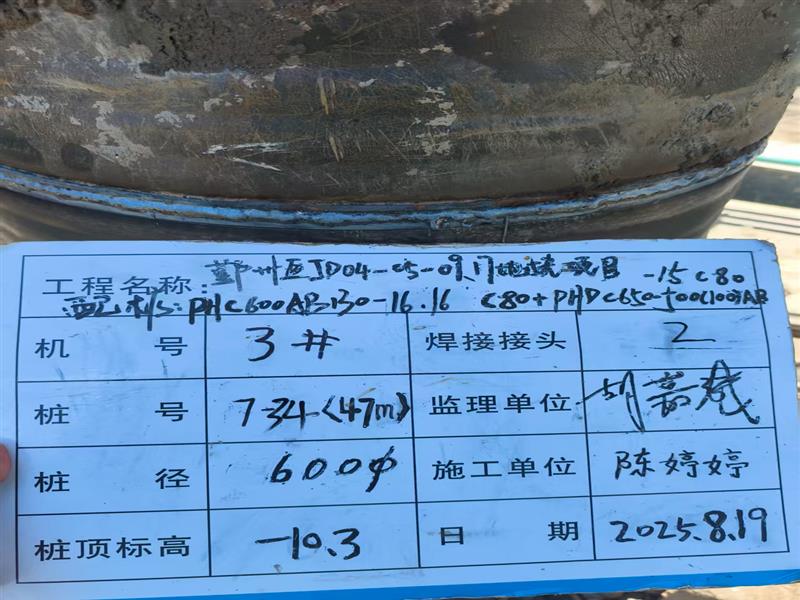 工程名称: 鄞州区JD04-05-09,17地块项目
配桩: PHC600AB130-16.16 C80+PHDC650-500(100)AB -15 C80
机号 3# 焊接接头 2
桩号 734(47m) 监理单位
桩径 600φ 施工单位 陈婷婷
桩顶标高 -10.3 日期 2025.8.19